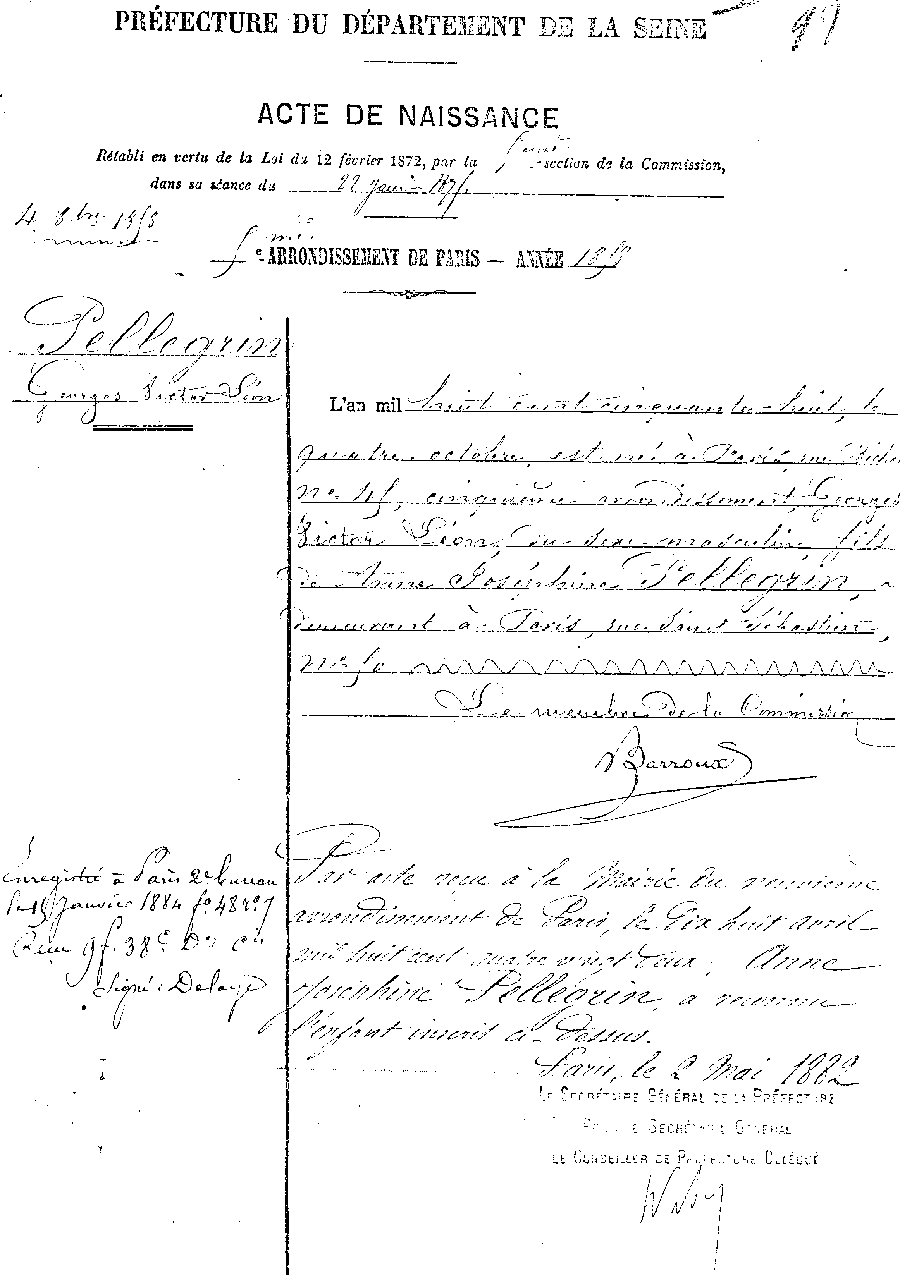 PRÉFECTURE DU DÉPARTEMENT DE LA SEINE
ACTE DE NAISSANCE
Rétabli en vertu de la Loi du 12 février 1872, par la section de la Commission,
dans sa séance du 22
4 8bre 1858
5e ARRONDISSEMENT DE PARIS — ANNÉE 1858
Pellegrin
Georges Victor Léon
L'an mil huit cent cinquante-huit, le
quatre octobre, est né à Paris, rue
no 45, cinquième arrondissement, Georges
Victor Léon, du sexe masculin, fils
de Anne Joséphine Pellegrin,
demeurant à Paris, rue Saint Sébastien,
no 50
Le membre de la Commission
Barroux
Enregistré à Paris 2e Bureau
le 15 Janvier 1884 fo 48
Reçu 9f. 38c
Signé: Delage
Par acte reçu à la Mairie du neuvième
arrondissement de Paris, le dix huit avril
mil huit cent quatre vingt deux, Anne
Joséphine Pellegrin, a reconnu
l'enfant inscrit ci-dessus.
Paris, le 2 Mai 1882
LE SECRÉTAIRE GÉNÉRAL DE LA PRÉFECTURE
POUR LE SECRÉTAIRE GÉNÉRAL
LE CONSEILLER DE PRÉFECTURE DÉLÉGUÉ